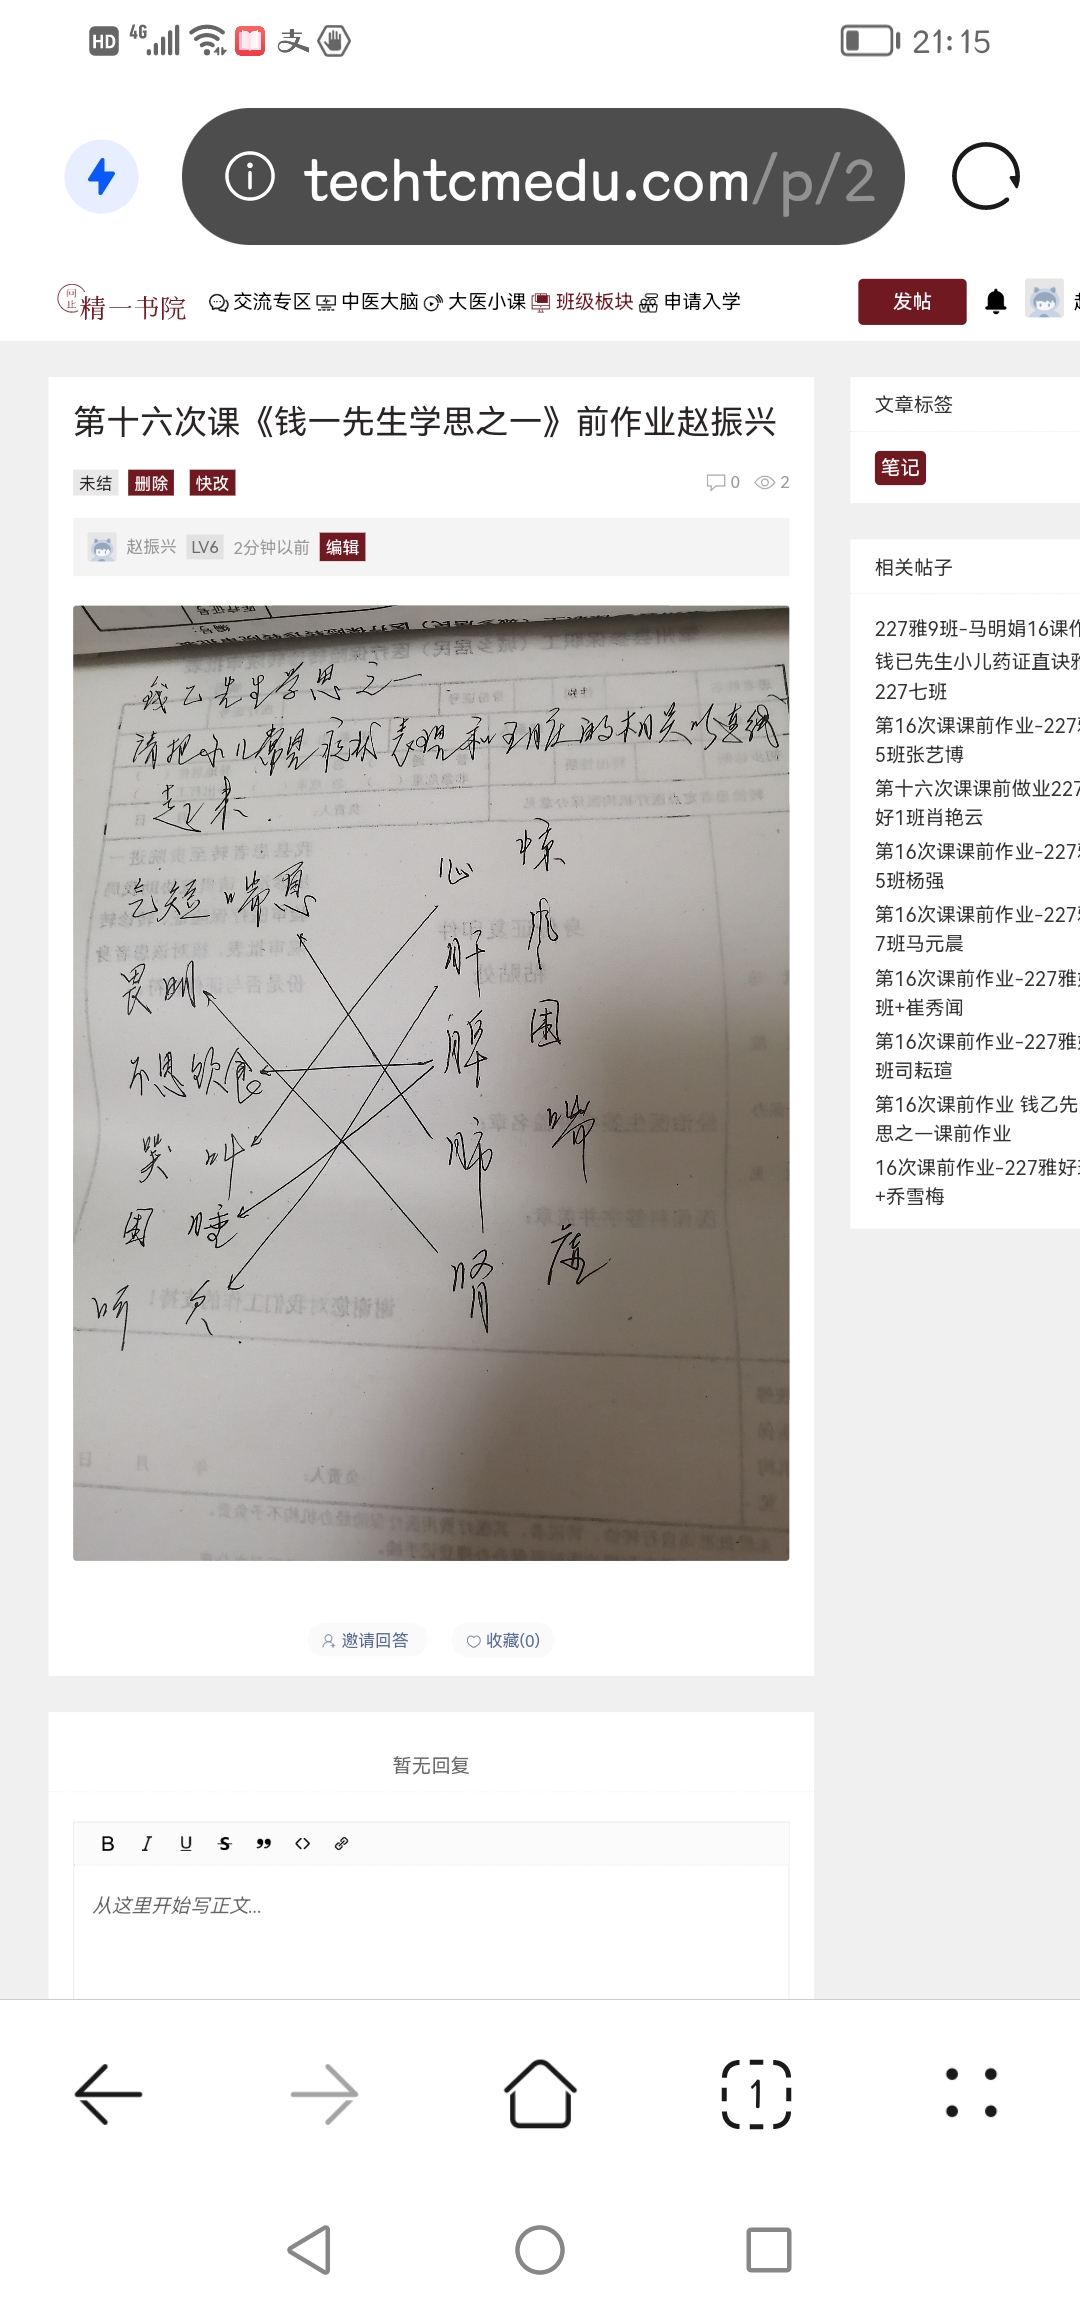 HD 4G 支 21:15
techtcmedu.com/p/2
问止 精一书院 交流专区 中医大脑 大医小课 班级板块 申请入学 发帖
第十六次课《钱一先生学思之一》前作业赵振兴
未结 删除 快改 0 2
赵振兴 LV6 2分钟以前 编辑
钱乙先生学思之一
请把小儿常见症状表现和五脏的相关以连线
起来.
气短喘息
畏明
不思饮食
哭叫
困睡
咳
心 惊
肝 风
脾 困
肺 喘
肾 虚
邀请回答 收藏(0)
暂无回复
B I U S
从这里开始写正文...
文章标签
笔记
相关帖子
227雅9班-马明娟16课作
钱已先生小儿药证直诀雅
227七班
第16次课课前作业-227雅
5班张艺博
第十六次课课前做业227
好1班肖艳云
第16次课课前作业-227雅
5班杨强
第16次课课前作业-227雅
7班马元晨
第16次课前作业-227雅好
班+崔秀闻
第16次课前作业-227雅好
班司耘瑄
第16次课前作业 钱乙先
思之一课前作业
16次课前作业-227雅好班
+乔雪梅
1